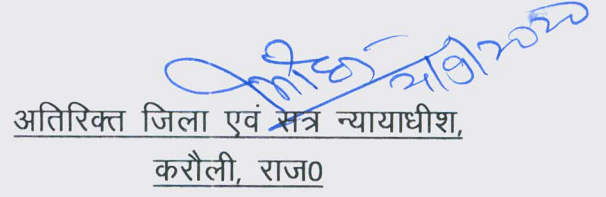 अतिरिक्त जिला एवं सत्र न्यायाधीश,
करौली, राज0